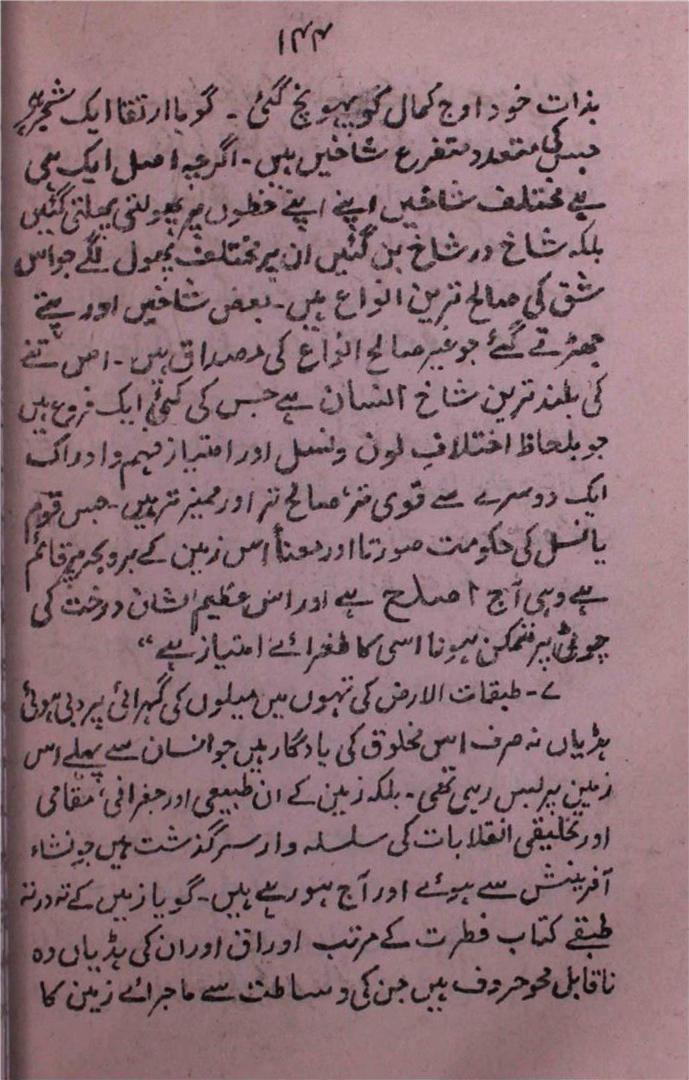 ۱۴۴
بذات خود اوج کمال کو پہونچ گئی ۔ گویا ارتقا ایک شجر ہے
جس کی متعدد متفرع شاخیں ہیں ۔ اگرچہ اصل ایک ہی
ہے مختلف شاخیں اپنے اپنے خطوں پر پھولتی پھلتی گئیں
بلکہ شاخ در شاخ بن گئیں ان پر مختلف پھول لگے جو اس
شق کی صالح ترین انواع ہیں ۔ بعض شاخیں اور پتے
جھڑتے گئے جو غیر صالح انواع کی مصداق ہیں ۔ اس تنے
کی بلند ترین شاخ انسان ہے جس کی کئی ایک فروع ہیں
جو بلحاظ اختلافِ لون و نسل اور امتیاز فہم و ادراک
ایک دوسرے سے قوی تر، صالح تر اور ممیز تر ہیں ۔ جس قوم
یا نسل کی حکومت صورتا اور معناً اس زمین کے بر و بحر پر قائم
ہے وہی آج اصلح ہے اور اس عظیم الشان درخت کی
چوٹی پر متمکن ہونا اسی کا طغرائے امتیاز ہے“
۷ ۔ طبقات الارض کی تہوں میں میلوں کی گہرائی پر دبی ہوئی
ہڈیاں نہ صرف اس مخلوق کی یادگار ہیں جو انسان سے پہلے اس
زمین پر بس رہی تھی ۔ بلکہ زمین کے ان طبیعی اور جغرافی، مقامی
اور تخلیقی انقلابات کی سلسلہ وار سرگذشت ہیں جو نشاء
آفرینش سے ہوئے اور آج ہو رہے ہیں ۔ گویا زمین کے تہ در تہ
طبقے کتاب فطرت کے مرتب اوراق اور ان کی ہڈیاں وہ
ناقابل محو حروف ہیں جن کی وساطت سے ماجرائے زمین کا